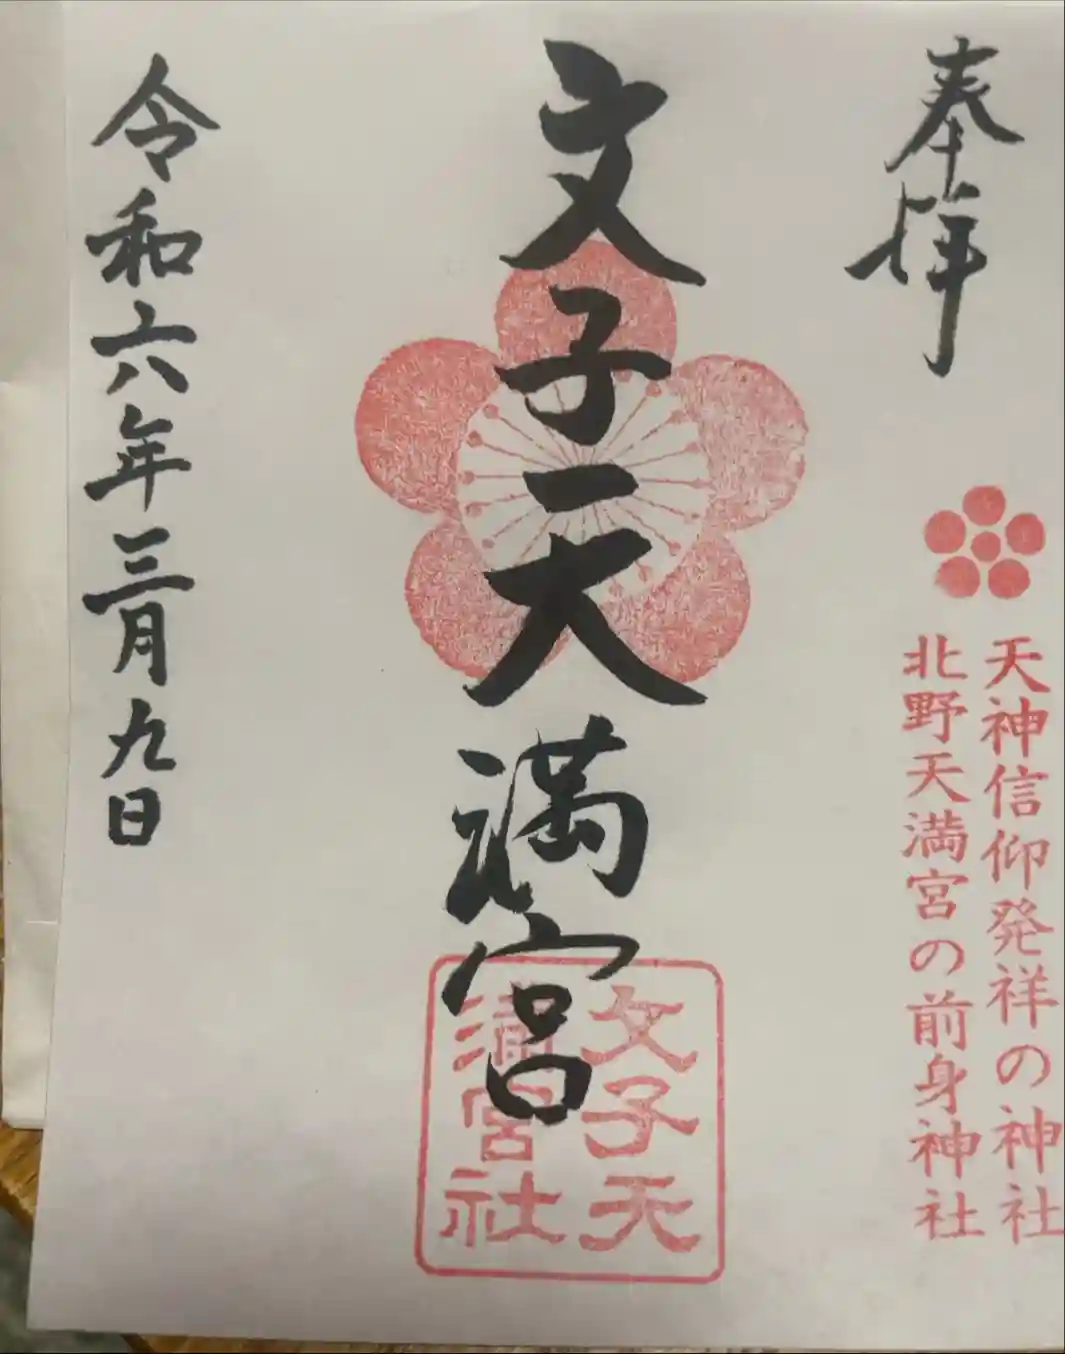 奉拝
天神信仰発祥の神社
北野天満宮の前身神社
文子天満宮
文子天
満宮社
令和六年三月九日